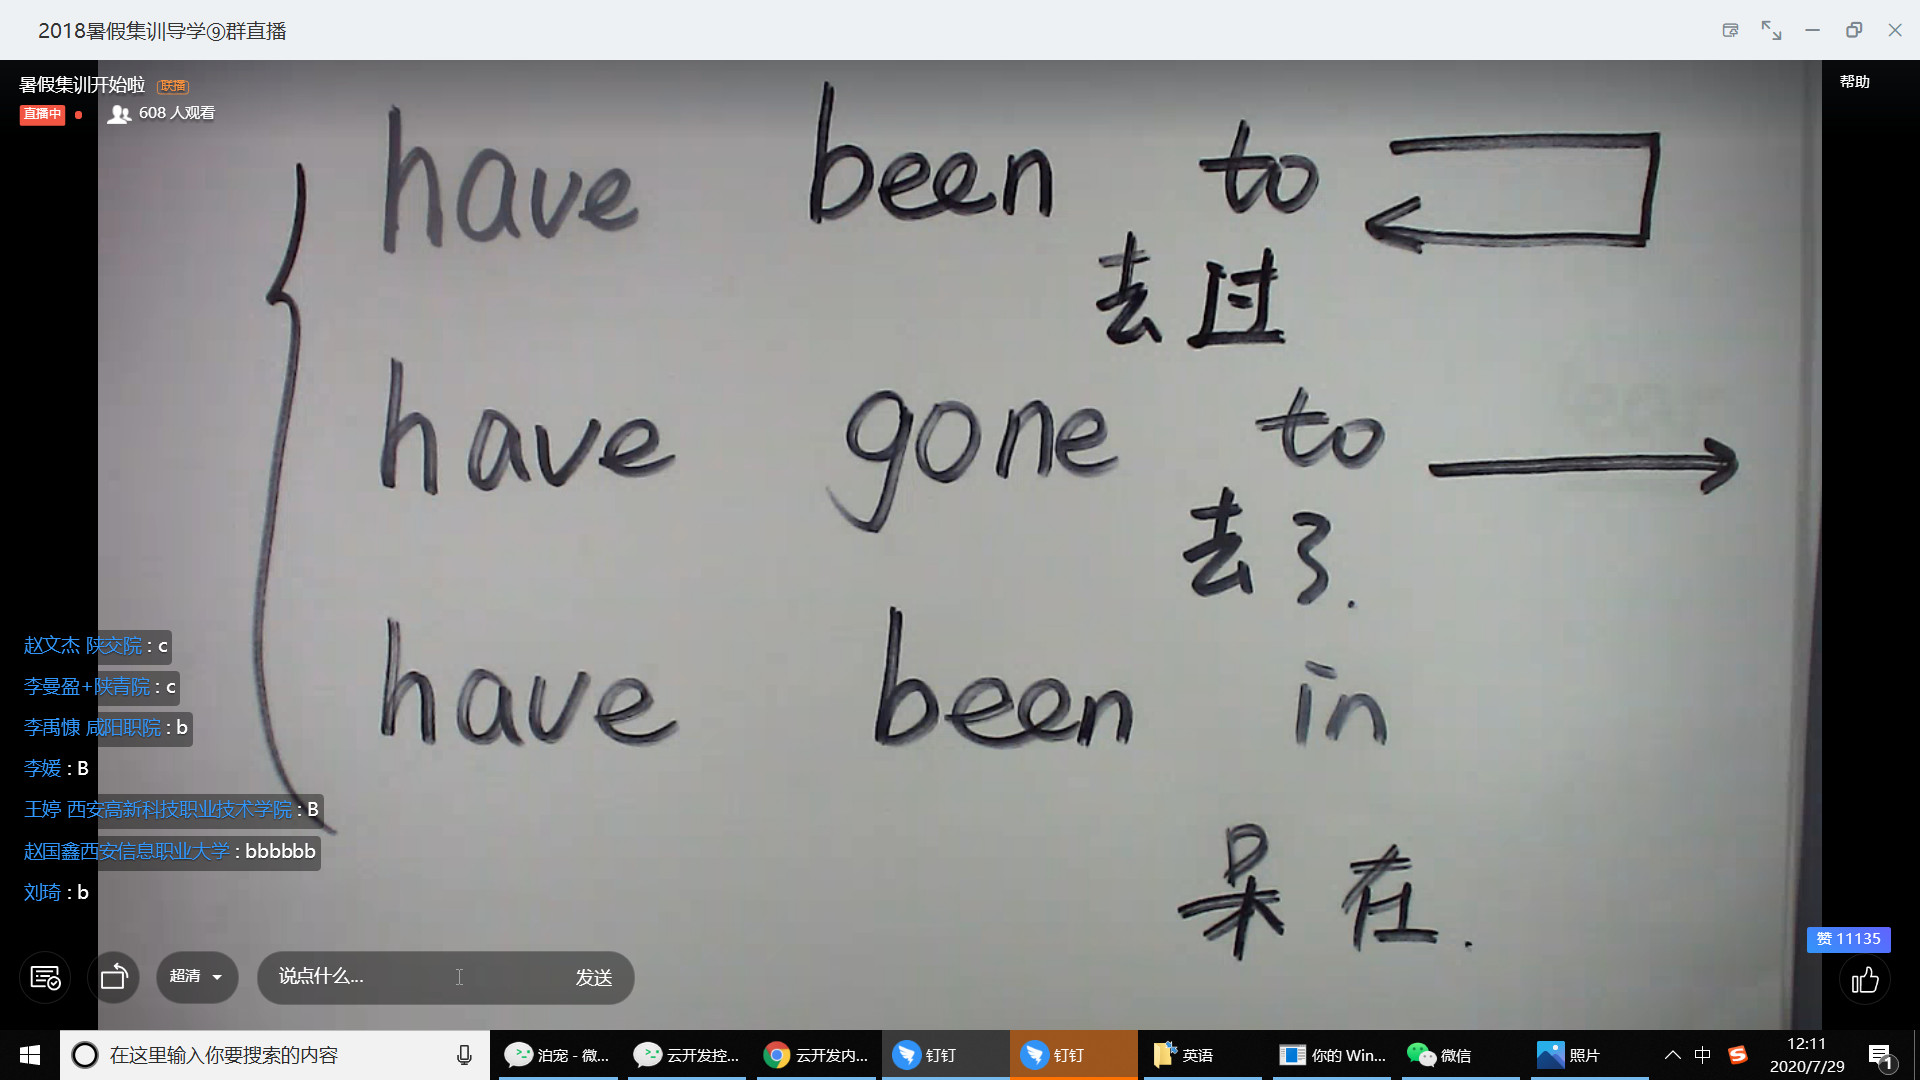 2018暑假集训导学⑨群直播
暑假集训开始啦 联播
帮助
直播中
608 人观看
have been to
去过
have gone to
去了.
have been in
呆在.
赵文杰 陕交院 : c
李曼盈+陕青院 : c
李禹慷 咸阳职院 : b
李媛 : B
王婷 西安高新科技职业技术学院 : B
赵国鑫西安信息职业大学 : bbbbbb
刘琦 : b
赞 11135
超清
说点什么...
发送
在这里输入你要搜索的内容
泊宠 - 微...
云开发控...
云开发内...
钉钉
钉钉
英语
你的 Win...
微信
照片
中
12:11
2020/7/29
1